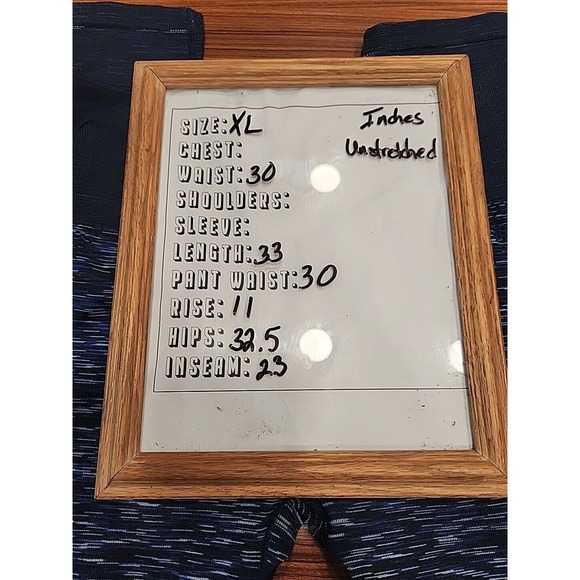 SIZE: XL
Inches
Unstretched
CHEST:
WAIST: 30
SHOULDERS:
SLEEVE:
LENGTH: 33
PANT WAIST: 30
RISE: 11
HIPS: 32.5
INSEAM: 23